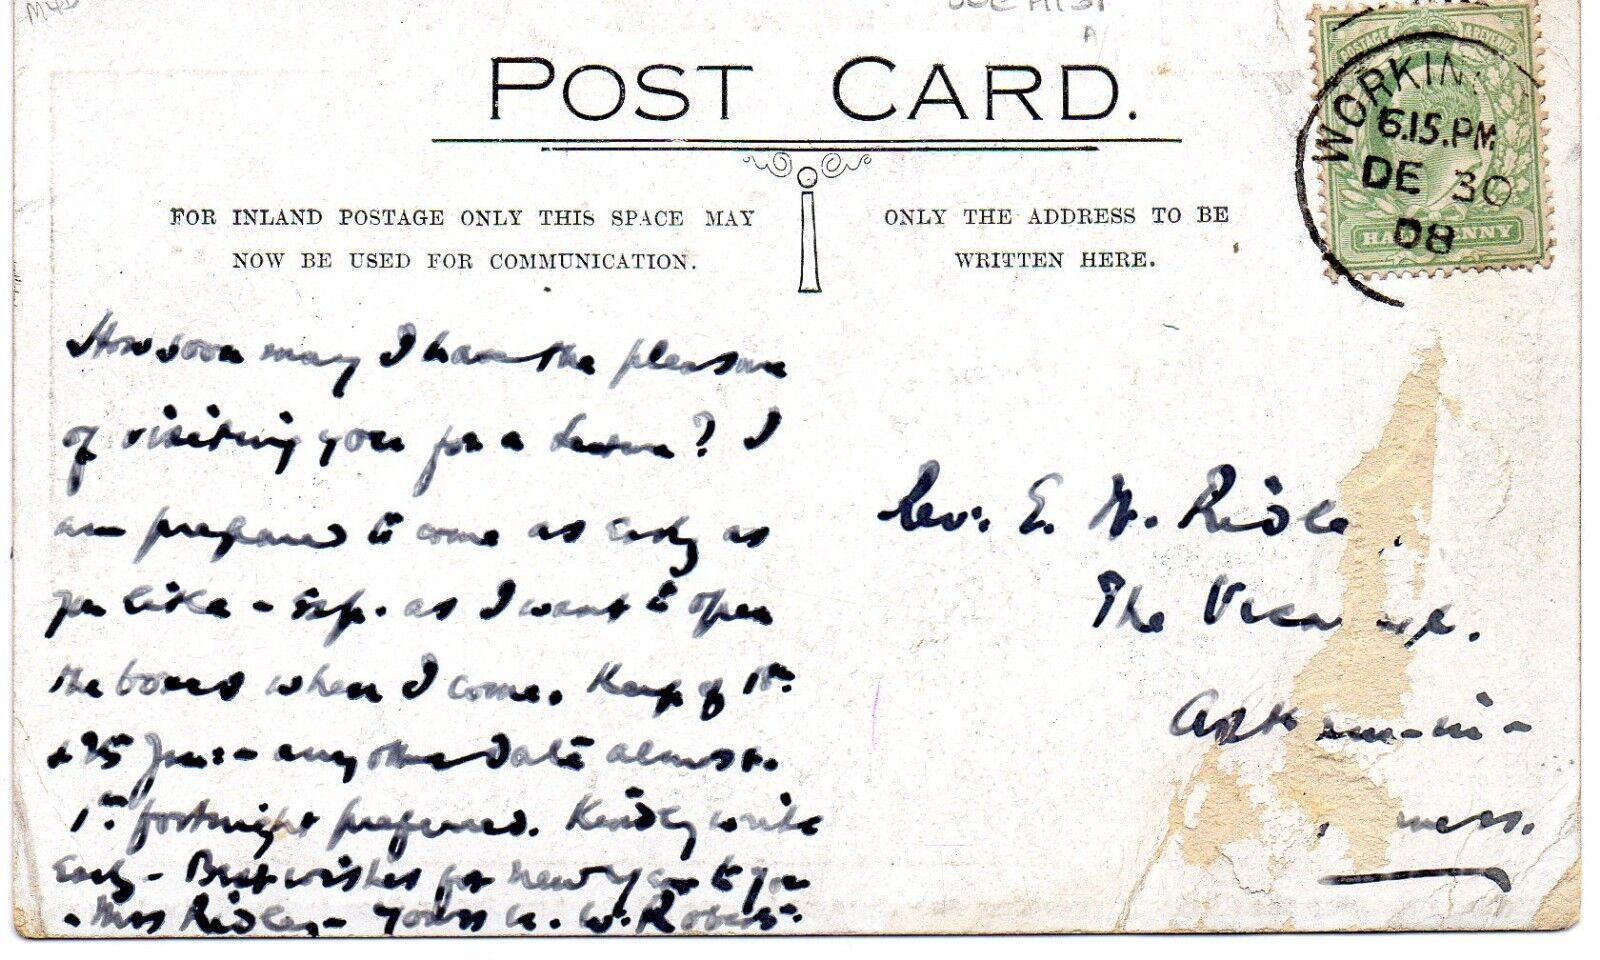 POST CARD.
FOR INLAND POSTAGE ONLY THIS SPACE MAY
NOW BE USED FOR COMMUNICATION.
ONLY THE ADDRESS TO BE
WRITTEN HERE.
WORKIN
6.15.PM
DE 30
08
POSTAGE REVENUE
HALFPENNY
How soon may I have the pleasure
of visiting you for a ? I
am prepared to come as early as
you like - esp. as I want to open
the boxes when I come. 18th
& 25 Jan: - any other date almost.
1st fortnight preferred. Kindly write
early - Best wishes for New Year to you
& Mrs Ridley - Yours W. Roberts.
Rev. E. W. Ridle
The Vica ge.
-in-
ness.